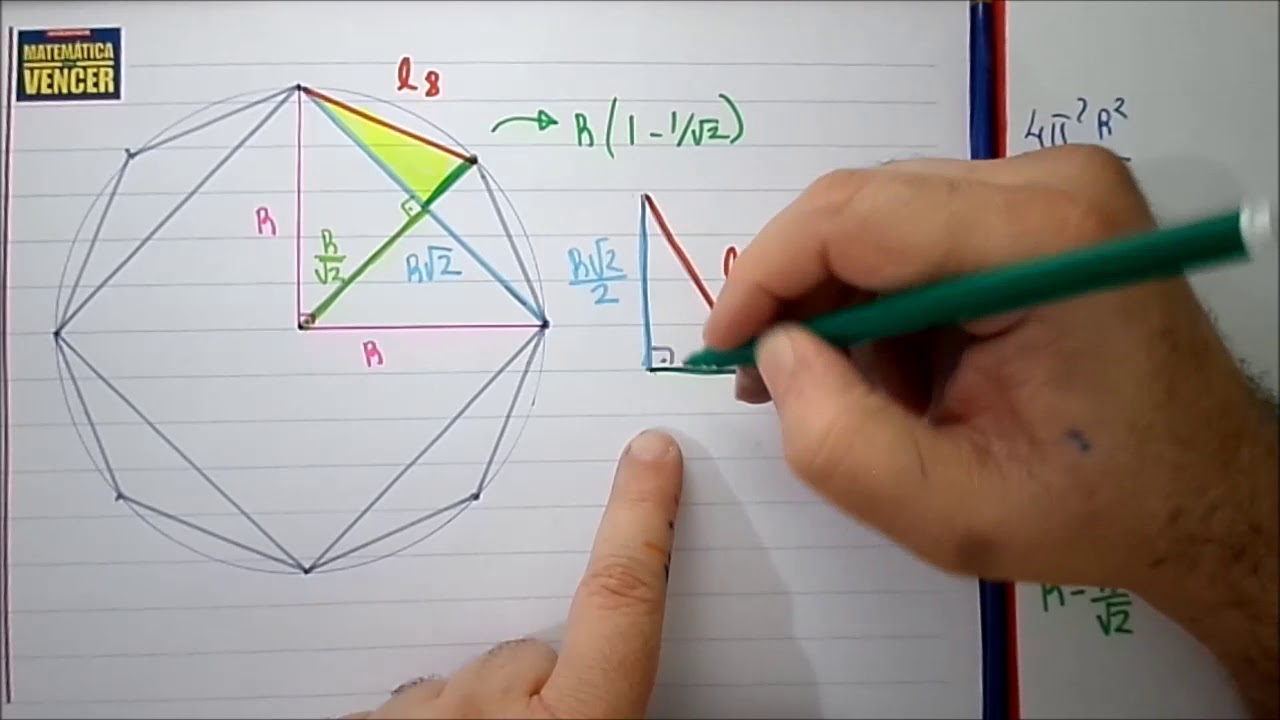 MATEMÁTICA
VENCER
l8
R(1-1/√2)
4π²R²
R
R/√2
R√2
R
R√2/2
l
R-R/√2